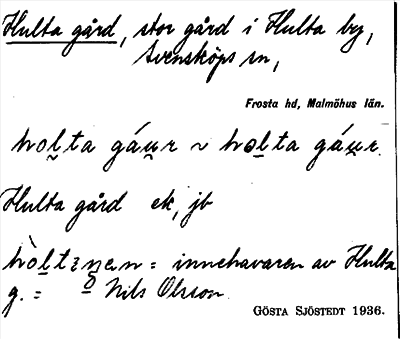 Hulta gård, stor gård i Hulta by,
Svensköps sn,
Frosta hd, Malmöhus län.
holta gáu̯r ~ holta gáu̯r.
Hulta gård ek, jb
= innehavaren av Hulta
g. = Nils Olsson.
GÖSTA SJÖSTEDT 1936.